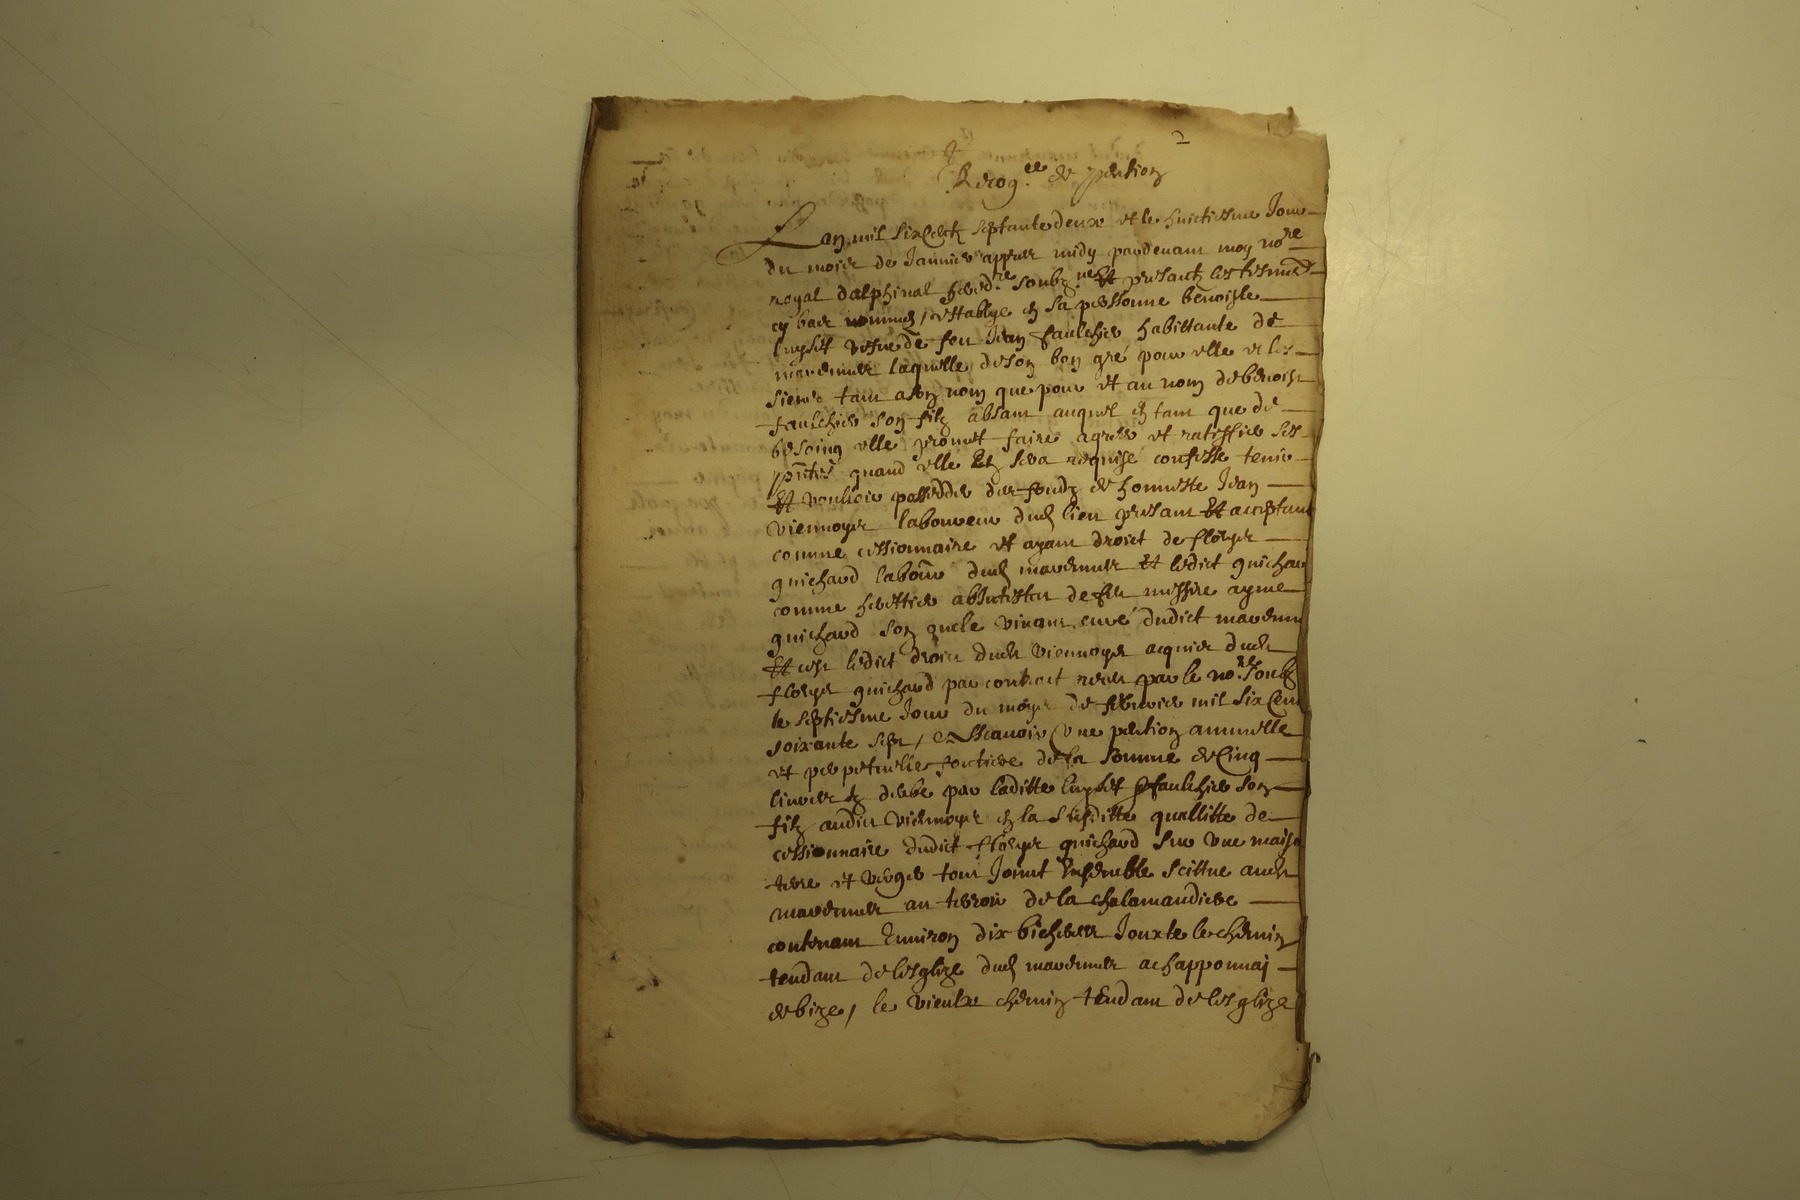 2
Recog.ce de pention
Lan mil six Centz septante deux et le huictiesme Jour
du mois de Janvier appres midy pardevant moy no.re
royal dalphinal hered.re soubz.né Et presantz les tesmoings
cy bas nommés / establye en sa personne benoiste
vefve de feu Jean faulchier habittante de
marennes laquelle de son bon gré pour elle et les
siens tant a son nom que pour et au nom de benoist
faulchier son filz absant auquel en tant que de
besoing elle promet faire agreer et ratiffier ses
p̃ntes quand elle En sera requise confesse tenir
Et vouloir posseder des fondz de honneste Jean
viennoys laboureur dud lieu presant Et acceptant
comme cessionnaire et ayant droict de fleurys
guichard labour dud marennes Et ledict guichard
comme heritier abintestat de feu messire ayme
guichard son oncle vivant curé dudict marennes
Et cest ledict droict dudt viennoys acquis dudt
fleurys guichard par contract receu par le no.re soubz
le septiesme Jour du moys de febvrier mil six Cent
soixante sept / a Scavoir Une pention annuelle
et perpetuelle fonciere de la somme de Cinq
livres deube par laditte faulchier son
filz audict viennoys en la susditte quallitte de
cessionnaire dudict fleurys guichard sur une maison
terre et verger tout Joinct Ensemble scittue audt
marennes au terroir de la chalamandiere
contenant Environ dix bicherees Jouxte le chemin
tendant de lesglize dud marennes a chapponnaj
de bize / le vieulx chemin tendant de lesglize